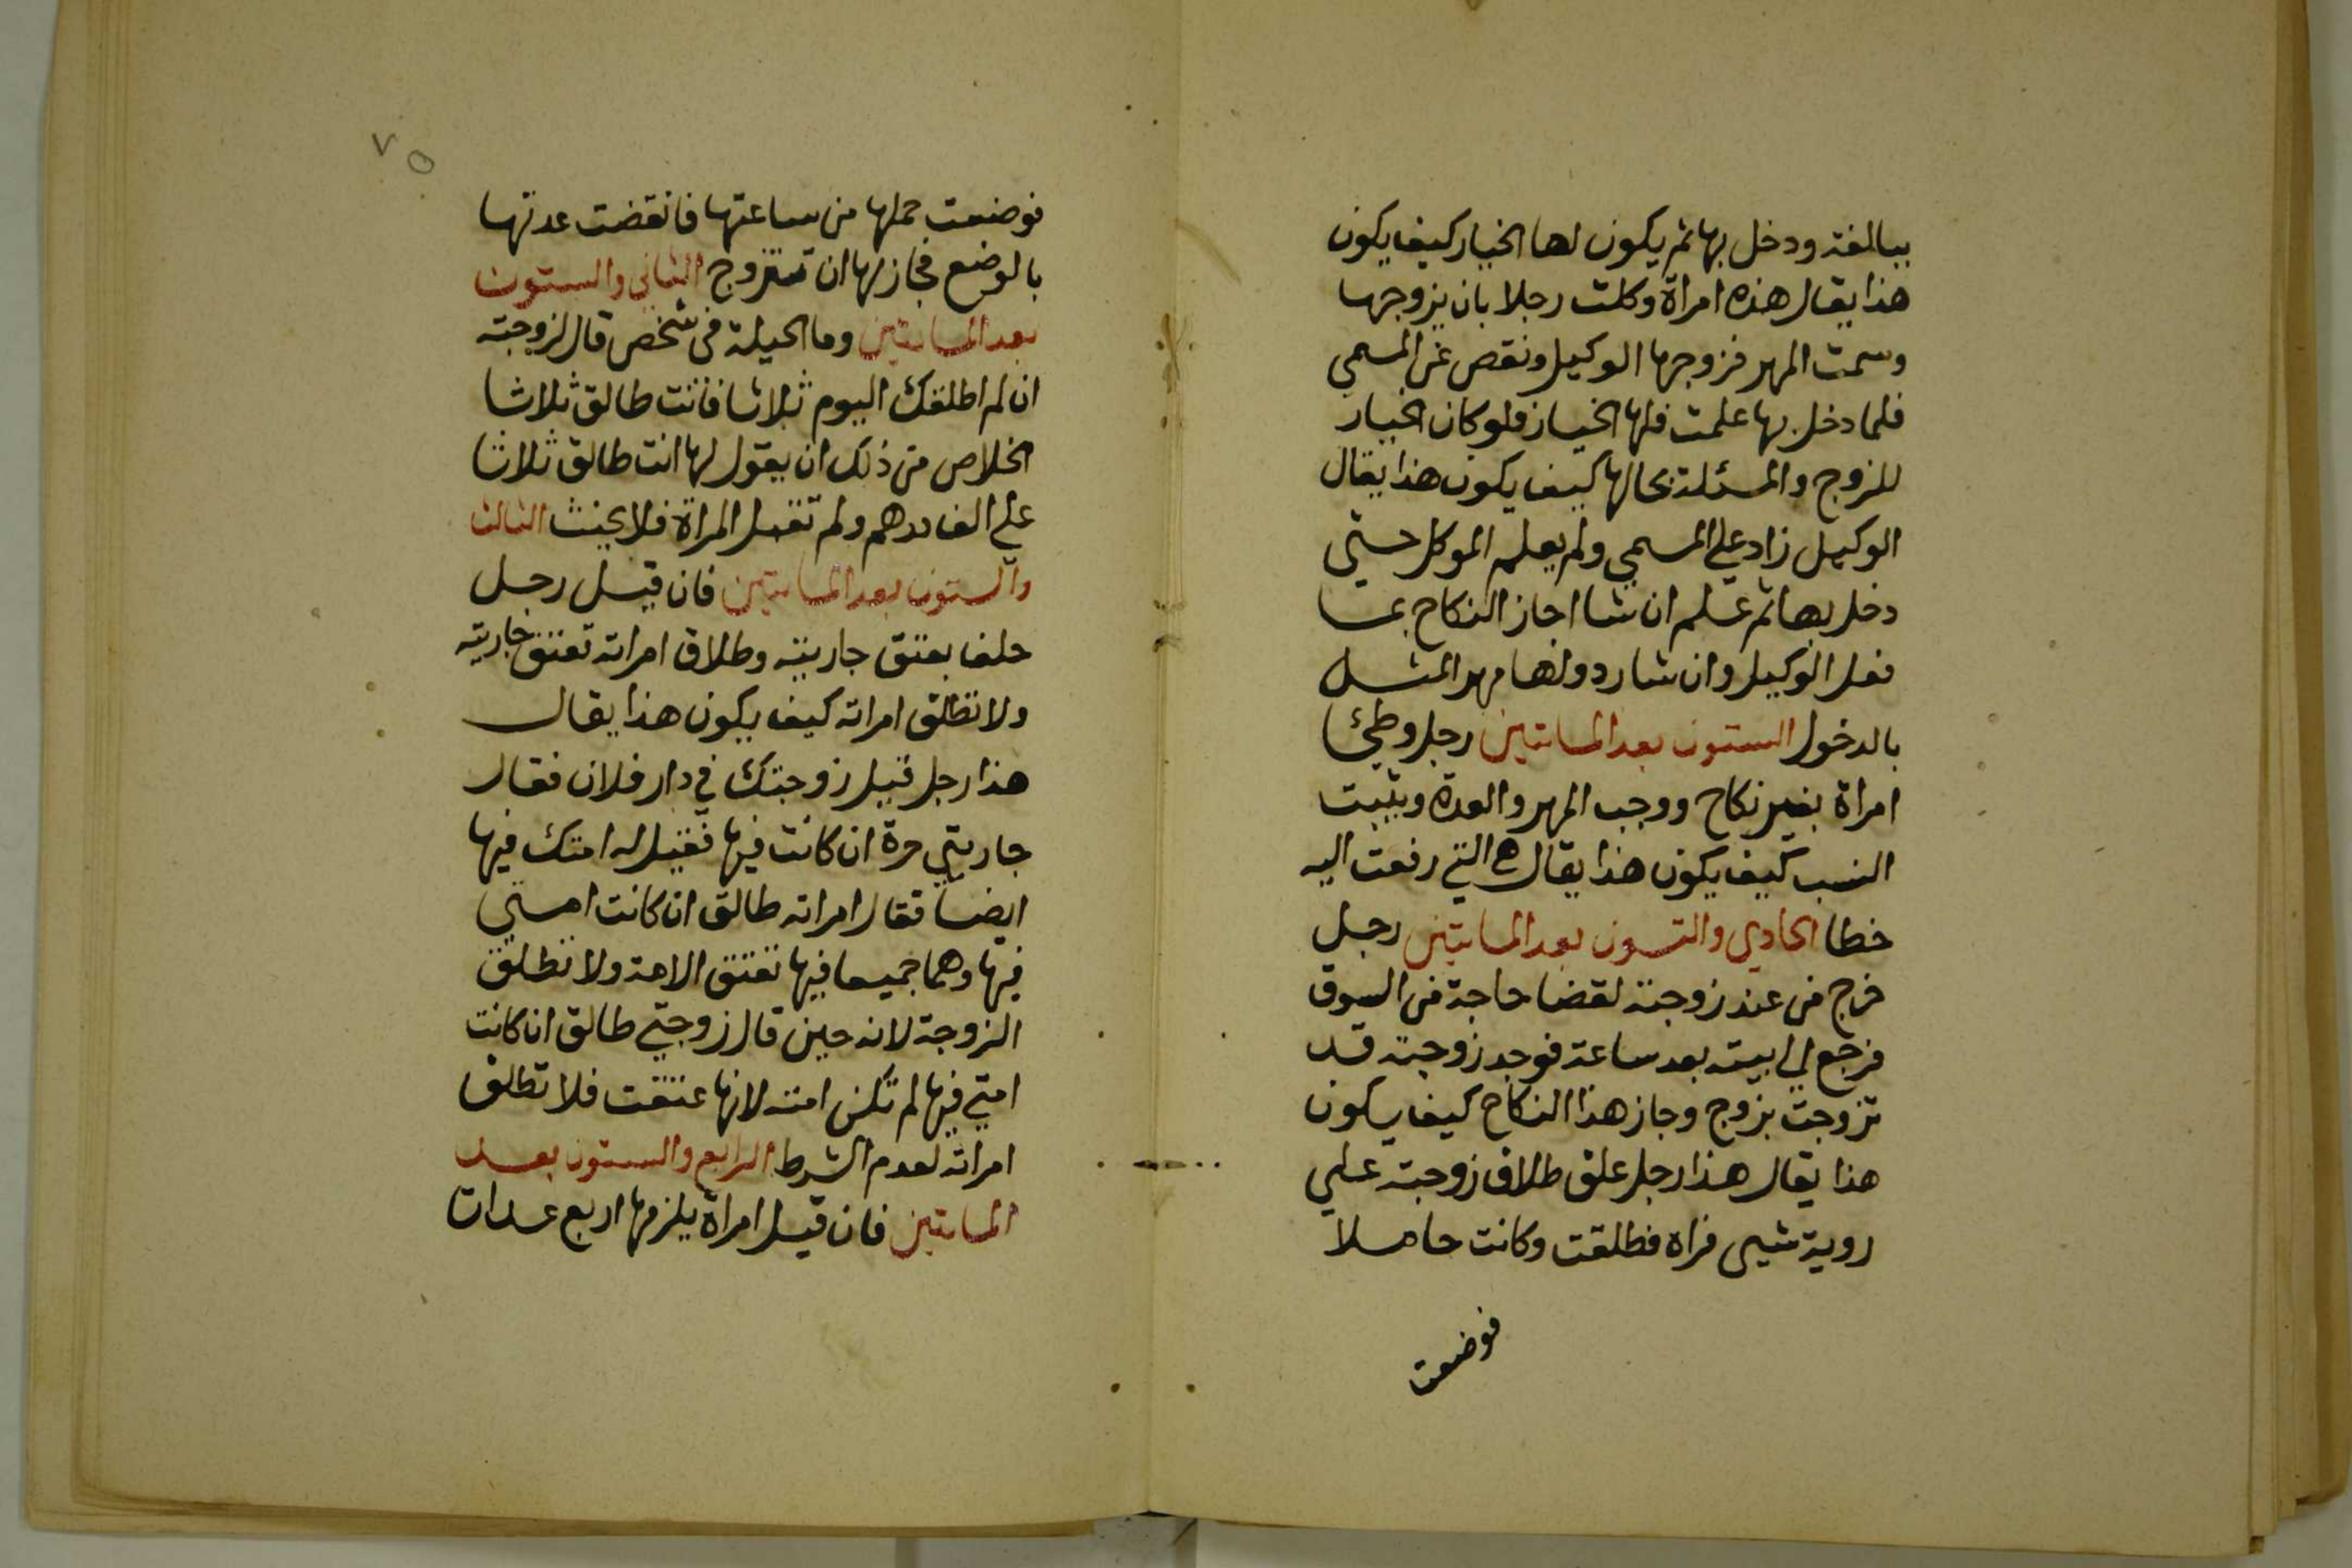 ببالغة ودخل بها ثم يكون لها الخيار كيف يكون
هذا يقال هذه امراة وكلت رجلا بان يزوجها
وسمت المهر فزوجها الوكيل ونقص عن المسمي
فلما دخل بها علمت فلها الخيار فلو كان الخيار
للزوج والمسئلة بحالها كيف يكون هذا يقال
الوكيل زاد علي المسمي ولم يعلم الموكل حتي
دخل بها ثم علم ان شا اجاز النكاح بما
فعل الوكيل وان شا رد ولها مهر المثل
بالدخول الستون بعد المايتين رجل وطئ
امراة بغير نكاح ووجب المهر والعدة ويثبت
النسب كيف يكون هذا يقال هي التي رفعت اليه
خطا الحادي والستون بعد المايتين رجل
خرج من عند زوجته لقضا حاجة من السوق
فرجع الي بيته بعد ساعة فوجد زوجته قد
تزوجت بزوج وجاز هذا النكاح كيف يكون
هذا يقال هذا رجل علق طلاق زوجته علي
روية شيى فراه فطلقت وكانت حاملا
فوضعت
٧٥
فوضعت حملها من ساعتها فانقضت عدتها
بالوضع فجاز لها ان تتزوج الثاني والستون
بعد المايتين وما الحيلة في شخص قال لزوجته
ان لم اطلقك اليوم ثلاثا فانت طالق ثلاثا
الخلاص من ذلك ان يقول لها انت طالق ثلاثا
علي الف درهم ولم تقبل المراة فلا يحنث الثالث
والستون بعد المايتين فان قيل رجل
حلف بعتق جاريته وطلاق امراته تعتق جاريته
ولا تطلق امراته كيف يكون هذا يقال
هذا رجل قيل زوجتك في دار فلان فقال
جاريتي حرة ان كانت فيها فقيل له امتك فيها
ايضا فقال امراته طالق ان كانت امتي
فيها وهما جميعا فيها تعتق الامة ولا تطلق
الزوجة لانه حين قال زوجتي طالق ان كانت
امتي فيها لم تكن امته لانها عتقت فلا تطلق
امراته لعدم الشرط الرابع والستون بعد
المايتين فان قيل امراة يلزمها اربع عدات